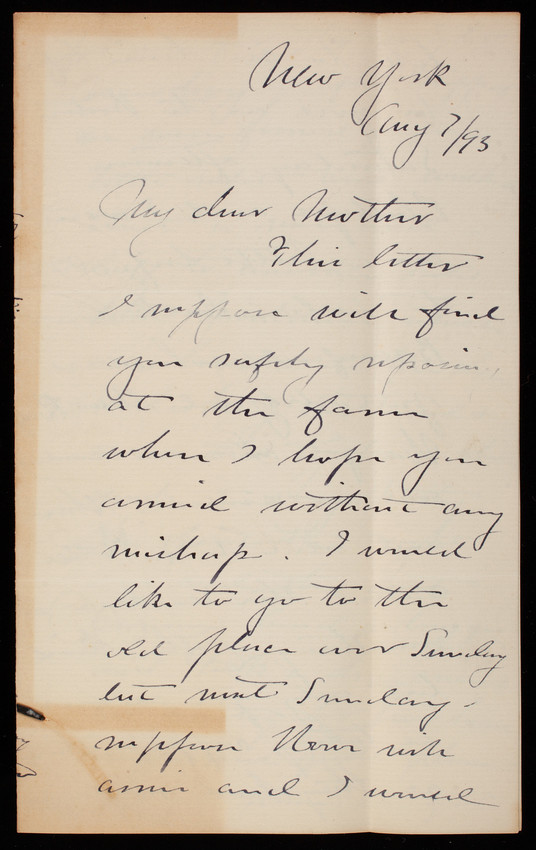 New York
Aug 7/93
My dear Mother
This letter
I suppose will find
you safely reposing
at the farm
where I hope you
arrived without any
mishap. I would
like to go to the
old place over Sunday
but next Sunday
suppose will
arrive and I would